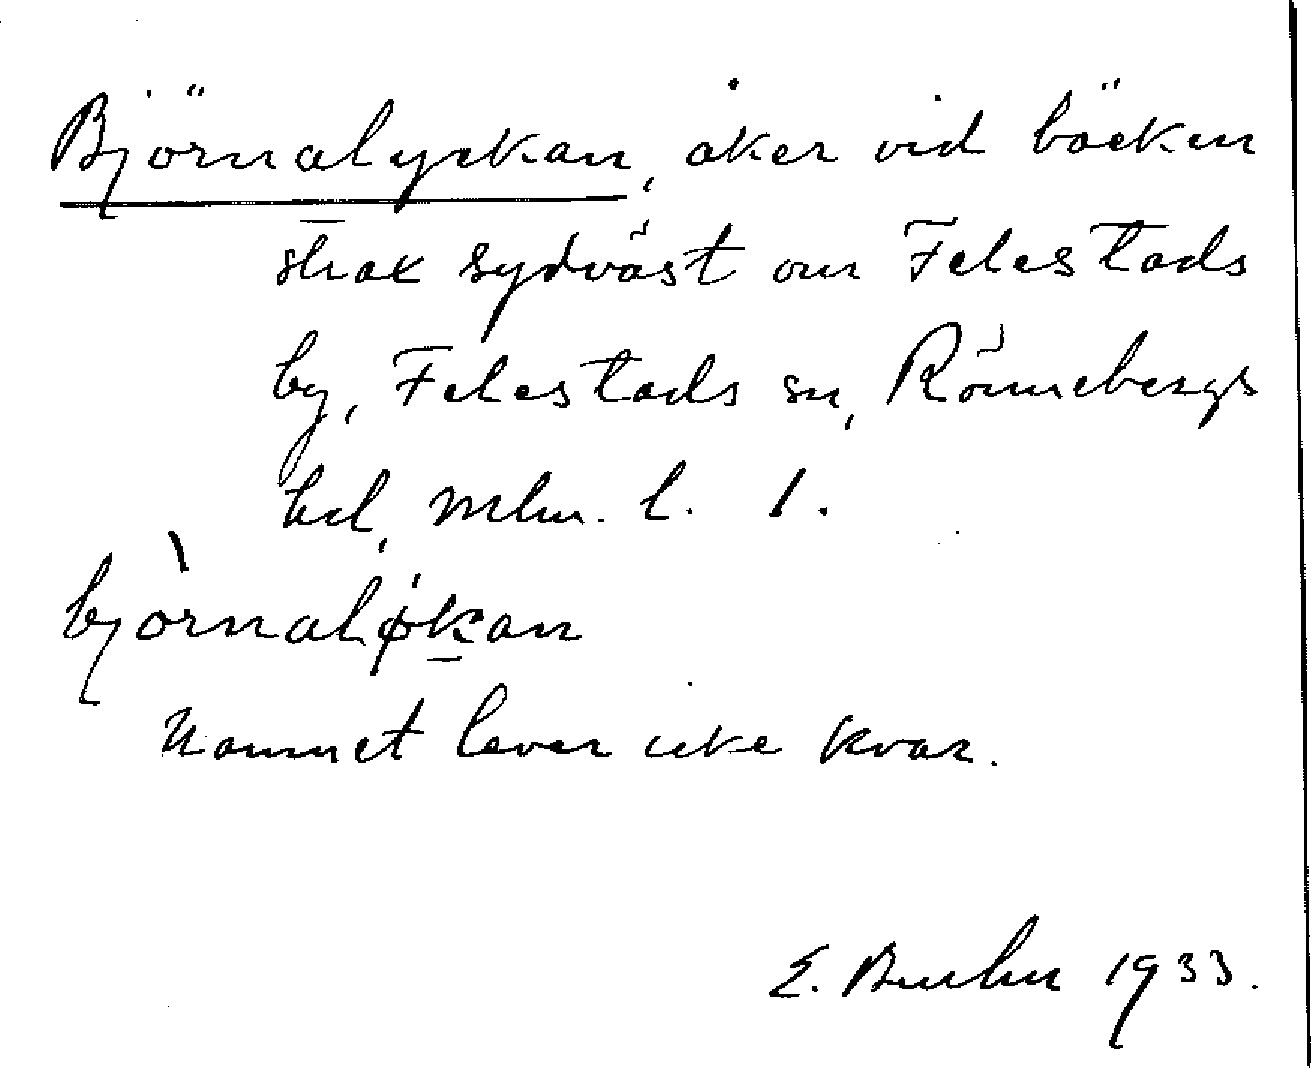 Björnalyckan, åker vid bäcken
strax sydväst om Felestads
by, Felestads sn, Rönnebergs
hd, Mlm. l. 1.
bjòrnaløkan
Namnet lever icke kvar.
E. Buhr 1933.